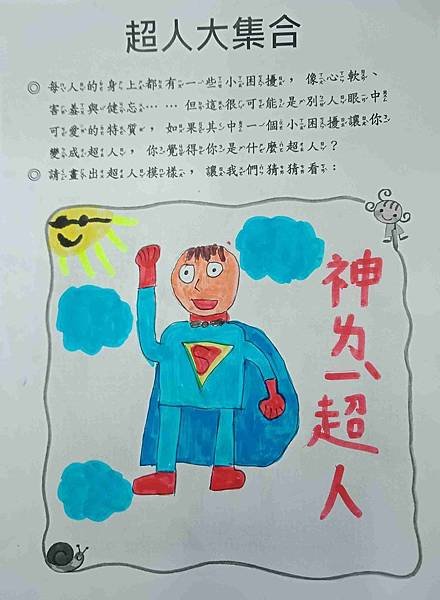 超人大集合
◎ 每人的身上都有一些小困擾，像心軟、
害羞與健忘……但這很可能是別人眼中
可愛的特質，如果其中一個小困擾讓你
變成超人，你覺得你是什麼超人？
◎ 請畫出超人模樣，讓我們猜猜看：
神ㄌㄧˋ超人
S